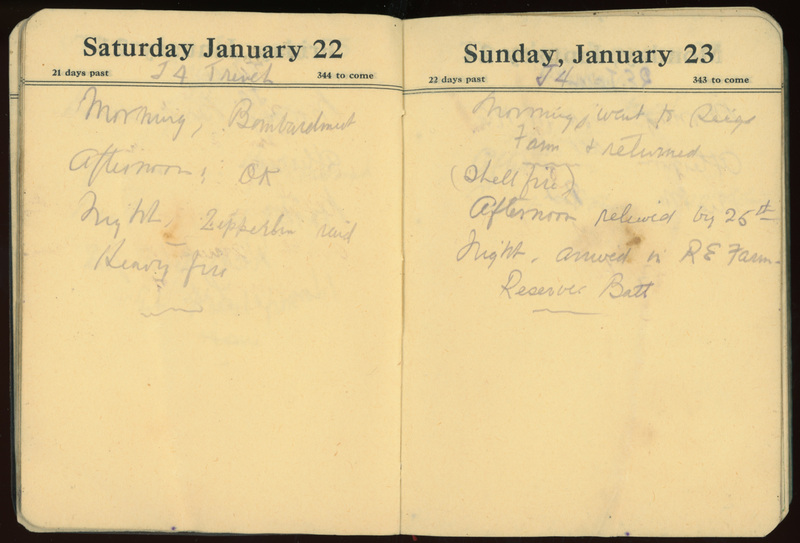 Saturday January 22
21 days past
344 to come
J 4 Trench
Morning, Bombardment
Afternoon; OK
Night, Zepperlin raid
Heavy fire
Sunday, January 23
22 days past
343 to come
J4
Morning, went to
Farm & returned
(Shell fire)
Afternoon relieved by 25th
Night, arrived in R E Farm
Reserve Batt